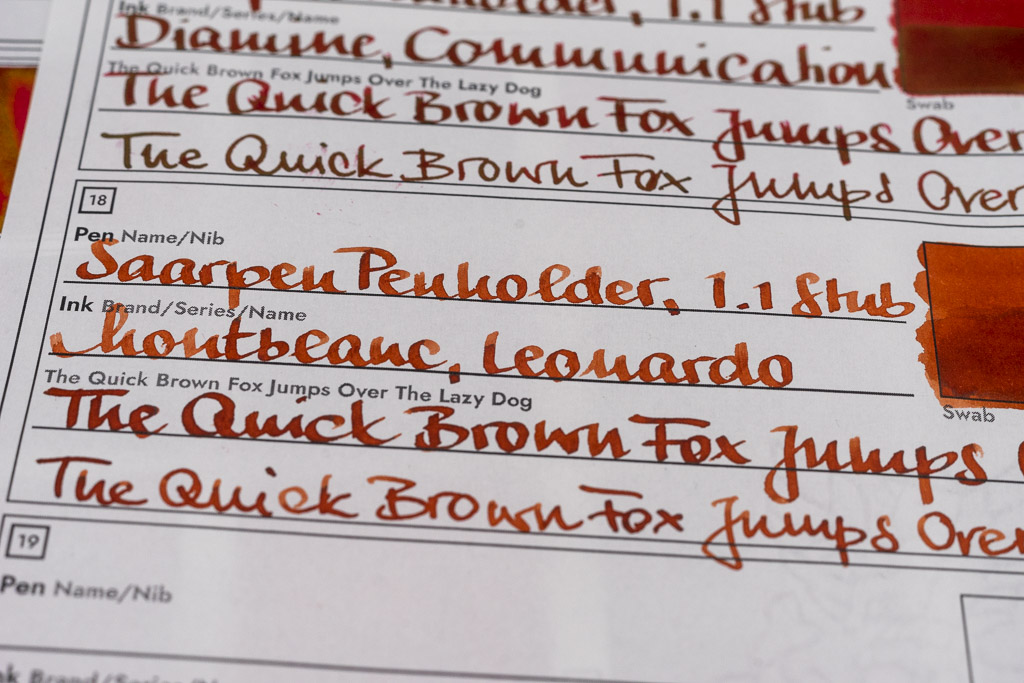 holder, 1.1 Stub
Ink Brand/Series/Name
Diamine, Communication
The Quick Brown Fox Jumps Over The Lazy Dog
Swab
The Quick Brown Fox Jumps Over
The Quick Brown Fox Jumps Over
18
Pen Name/Nib
Saarpen Penholder, 1.1 Stub
Ink Brand/Series/Name
Montbeanc, Leonardo
The Quick Brown Fox Jumps Over The Lazy Dog
Swab
The Quick Brown Fox Jumps
The Quick Brown Fox Jumps Over
19
Pen Name/Nib
Ink Brand/Series/Name